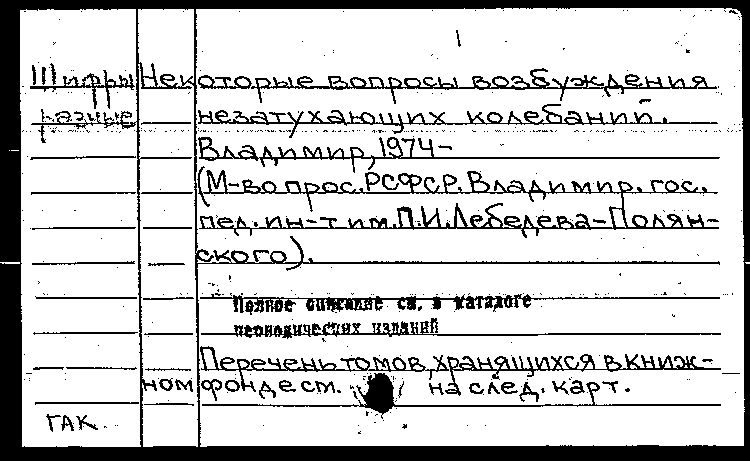 Шифры Некоторые вопросы возбуждения
разные незатухающих колебаний.
Владимир, 1974-
(М-во прос. РСФСР. Владимир. гос.
пед. ин-т им. П.И. Лебедева-Полян-
ского).
Полное описание см. в каталоге
периодических изданий
Перечень томов, хранящихся в книж-
ном фонде см. на след. карт.
ГАК